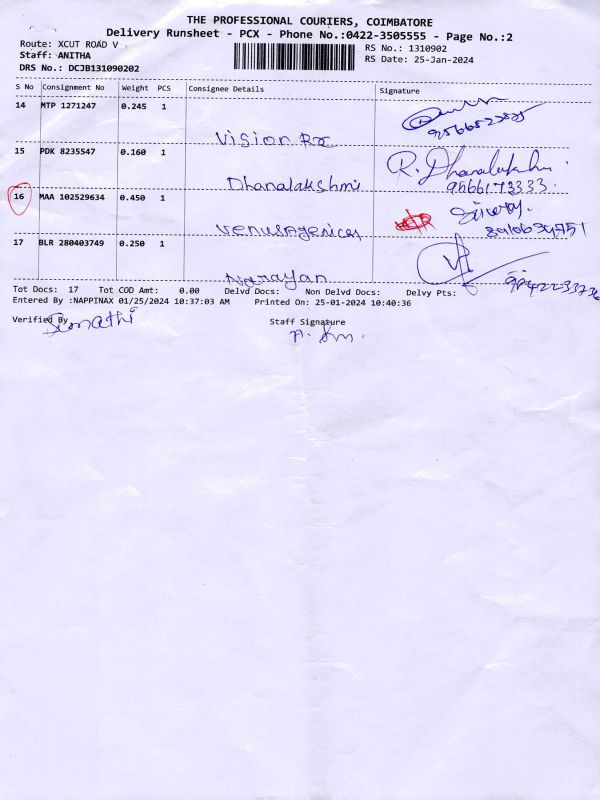 THE PROFESSIONAL COURIERS, COIMBATORE
Delivery Runsheet - PCX - Phone No.:0422-3505555 - Page No.:2
Route: XCUT ROAD V
Staff: ANITHA
DRS No.: DCJB131090202
RS No.: 1310902
RS Date: 25-Jan-2024
S No Consignment No Weight PCS Consignee Details Signature
14 MTP 1271247 0.245 1
Vision Rx
15 PDK 8235547 0.160 1
R. Dhanalakshmi
Dhanalakshmi 9566173333
16 MAA 102529634 0.450 1
Venus Agencies
17 BLR 280403749 0.250 1
Narayan
Tot Docs: 17 Tot COD Amt: 0.00 Delvd Docs: Non Delvd Docs: Delvy Pts:
Entered By :NAPPINAX 01/25/2024 10:37:03 AM Printed On: 25-01-2024 10:40:36
Verified By Staff Signature
Sumathi